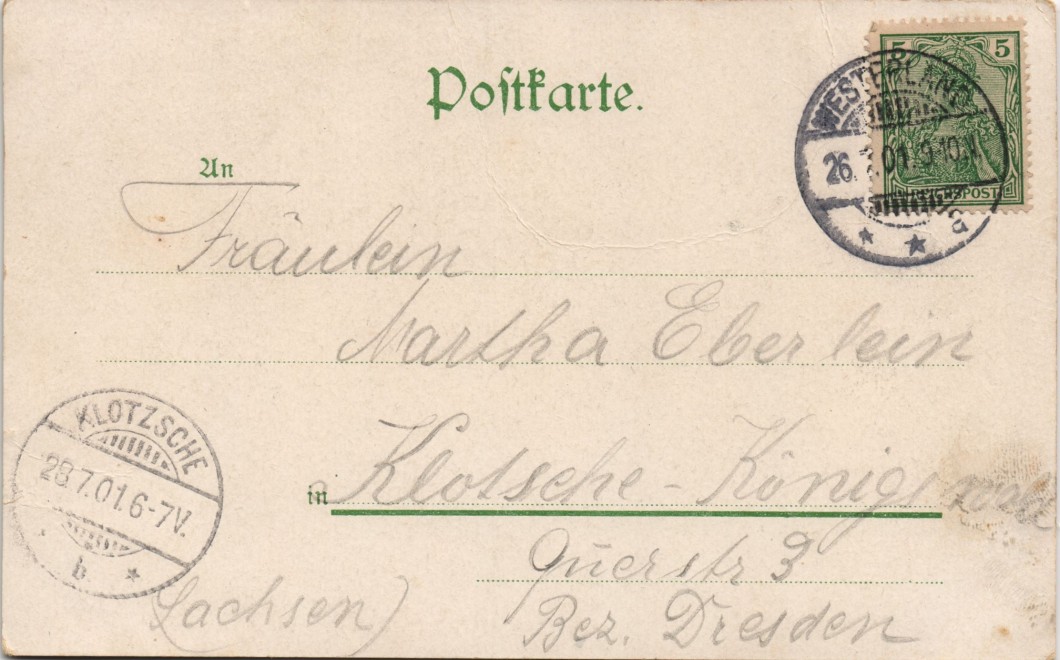 Postkarte.
5 5
WESTERLAND
26. 7. 01. 9-10 V.
a
REICHSPOST
An
Fräulein
Martha Eberlein
KLOTZSCHE
28.7.01.6-7V.
b
in Klotsche - Königswald
Querstr 3
(Sachsen) Bez. Dresden